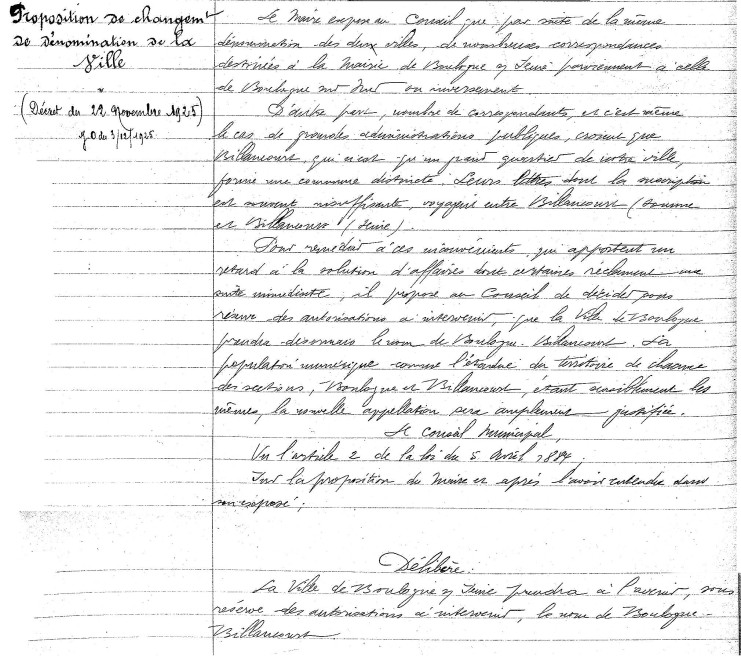 Proposition de changemt
de Dénomination de la
Ville
(Décret du 22 Novembre 1925)
J.O du 3/12/1925
Le Maire expose au Conseil que par suite de la même
dénomination des deux villes, de nombreuses correspondances
destinées à la Mairie de Boulogne s/ Seine parviennent à celle
de Boulogne sur Mer ou inversement.
D'autre part, nombre de correspondants, et c'est même
le cas de grandes administrations publiques, croient que
Billancourt, qui n'est qu'un grand quartier de notre ville,
forme une commune distincte. Leurs lettres dont la suscription
est souvent insuffisante, voyagent entre Billancourt (Somme
et Billancourt (Seine).
Pour remédier à ces inconvénients, qui apportent un
retard à la solution d'affaires dont certaines réclament une
suite immédiate, il propose au Conseil de décider sous
réserve des autorisations à intervenir que la Ville de Boulogne
prendra désormais le nom de Boulogne-Billancourt. La
population numérique comme l'étendue du territoire de chacune
des sections, Boulogne et Billancourt, étant sensiblement les
mêmes, la nouvelle appellation sera amplement justifiée.
Le Conseil Municipal,
Vu l'article 2 de la loi du 5 Avril 1884,
Sur la proposition du Maire et après l'avoir entendu dans
son exposé;
Délibère:
La Ville de Boulogne s/ Seine prendra à l'avenir, sous
réserve des autorisations à intervenir, le nom de Boulogne-
Billancourt.